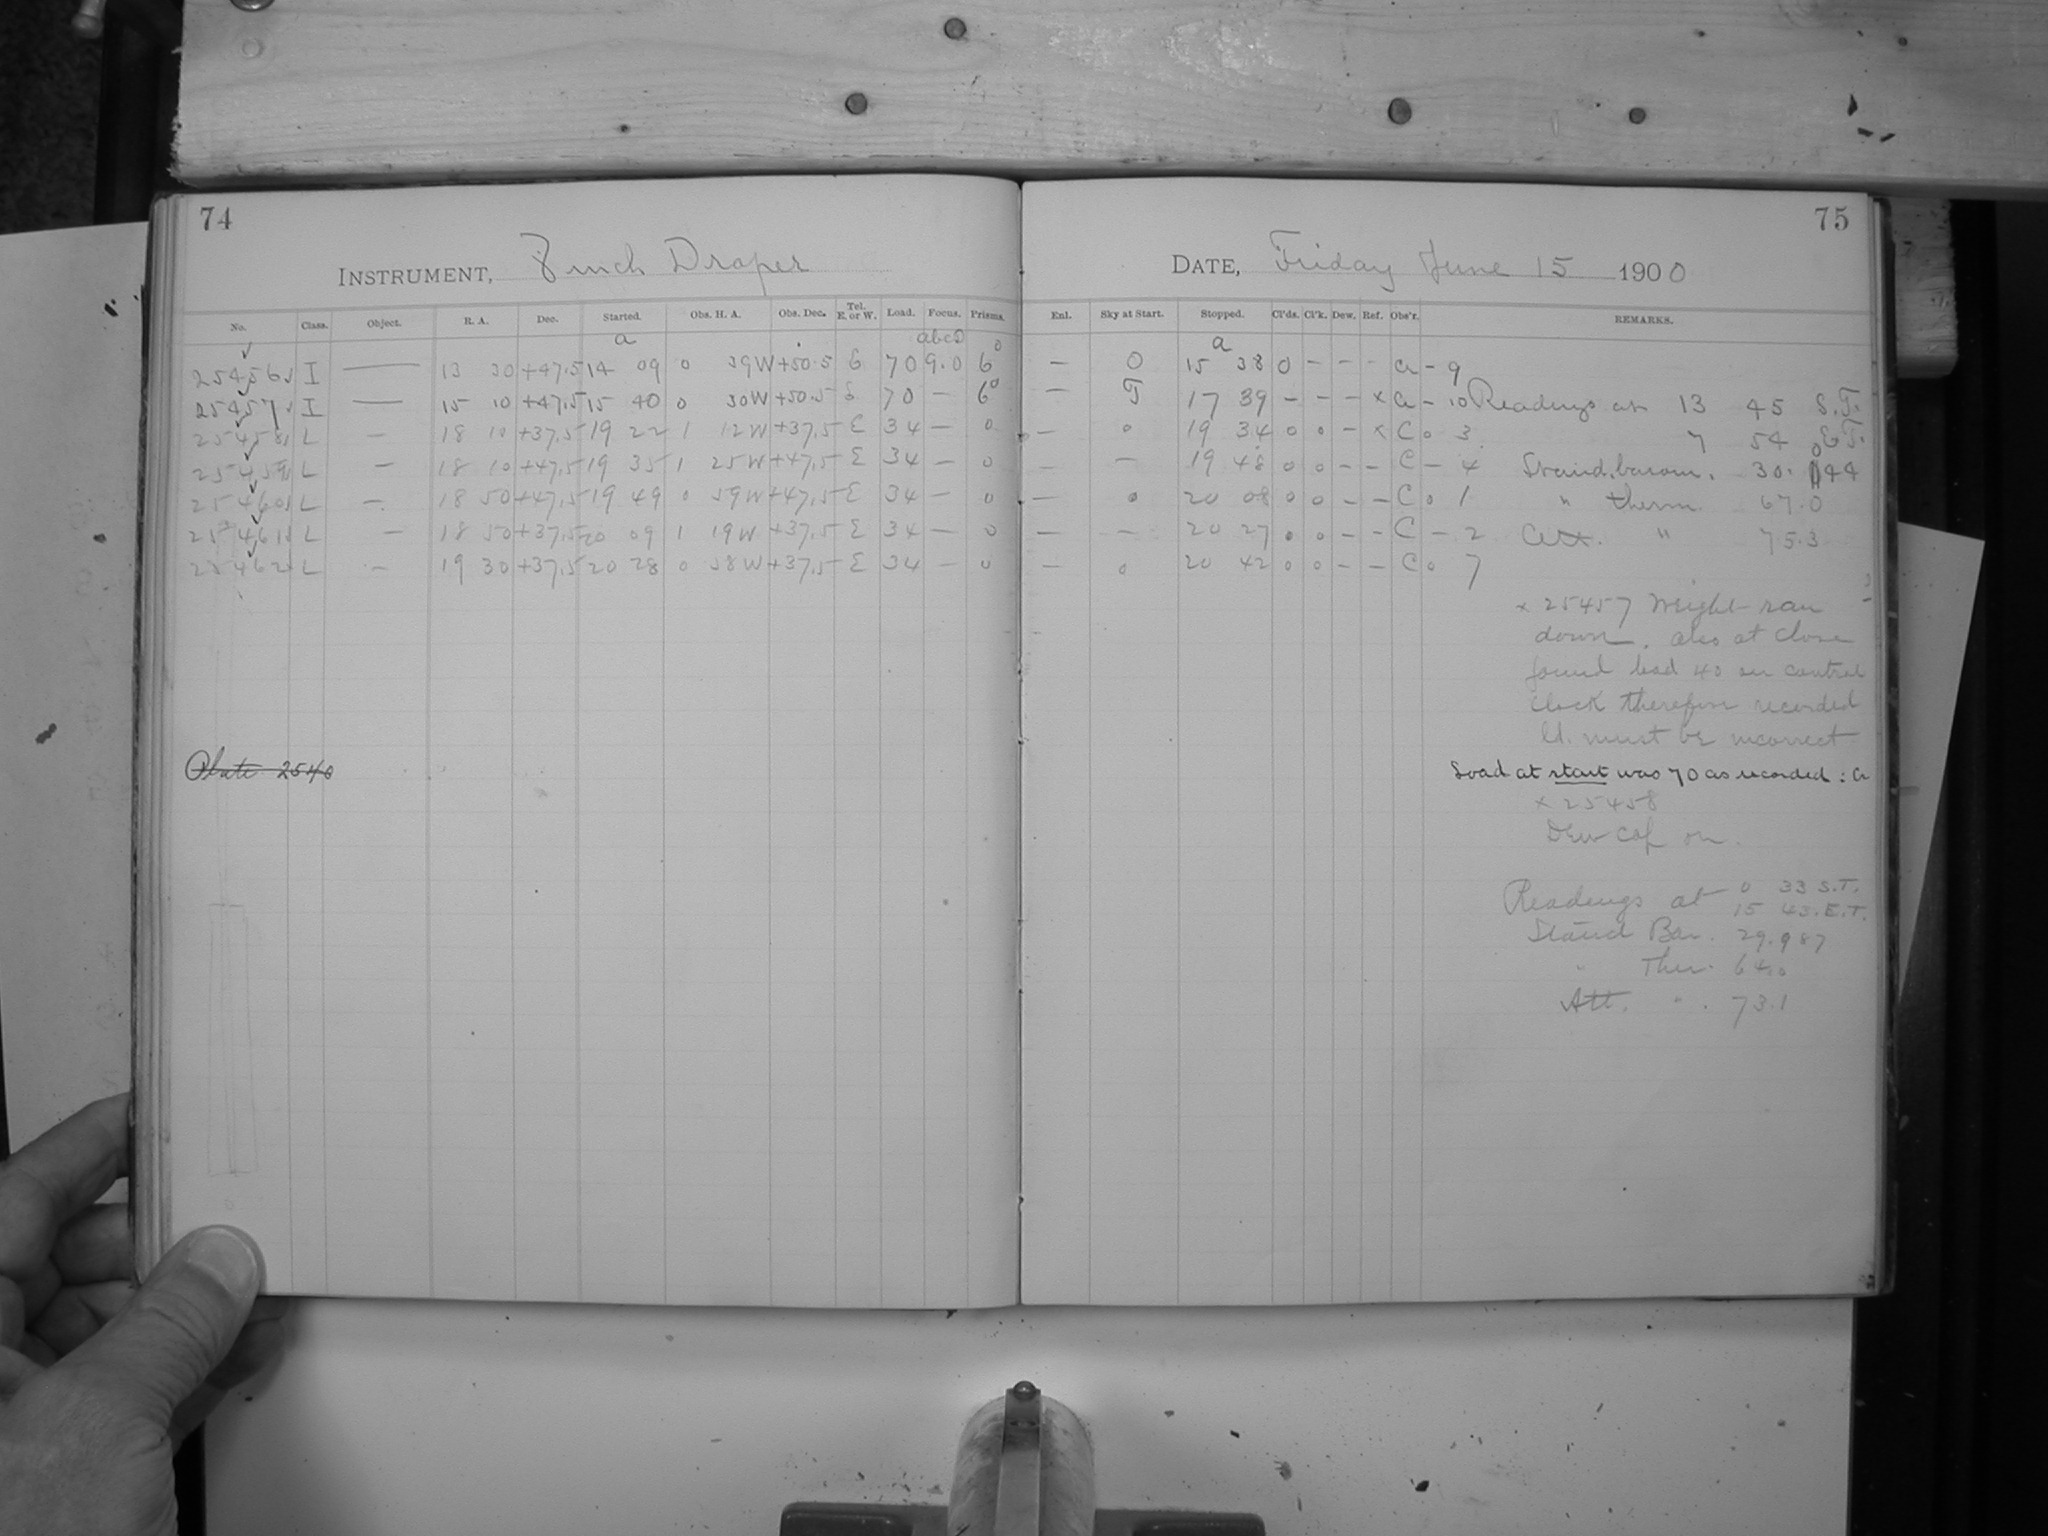 74
75
INSTRUMENT, 8 inch Draper
DATE, Friday June 15 1900
No. Class. Object. R. A. Dec. Started. Obs. H. A. Obs. Dec. Tel. E. or W. Load. Focus. Prisms. Enl. Sky at Start. Stopped. Cl'ds. Cl'k. Dew. Ref. Obs'r. REMARKS.
a abcd a
25456 I — 13 30 +47.5 14 09 0 39W +50.5 E 70 9.0 6° — 0 15 38 0 - - - a - 9
25457 I — 15 10 +47.5 15 40 0 30W +50.5 E 70 — 6° — T 17 39 - - - x a - 10 Readings at 13 45 S.T.
25458 L — 18 10 +37.5 19 22 1 12W +37.5 E 34 — 0 — 0 19 34 0 0 - x C 0 3 7 54 E.T.
25459 L — 18 10 +47.5 19 35 1 25W +47.5 E 34 — 0 — — 19 48 0 0 - - C - 4 Stand. barom. 30. 044
25460 L — 18 50 +47.5 19 49 0 59W +47.5 E 34 — 0 — 0 20 08 0 0 - - C 0 1 " therm. 67.0
25461 L — 18 50 +37.5 20 09 1 19W +37.5 E 34 — 0 — — 20 27 0 0 - - C - 2 Att. " 75.3
25462 L — 19 30 +37.5 20 28 0 58W +37.5 E 34 — 0 — 0 20 42 0 0 - - C 0 7
x 25457 Weight ran
down, also at close
found load 40 on control
clock therefore recorded
ld. must be incorrect
Plate 2540
Load at start was 70 as recorded : a
x 25458
Dew cap on.
Readings at 0 33 S.T.
15 43. E.T.
Stand Bar. 29.987
" Ther. 64.0
Att. " . 73.1